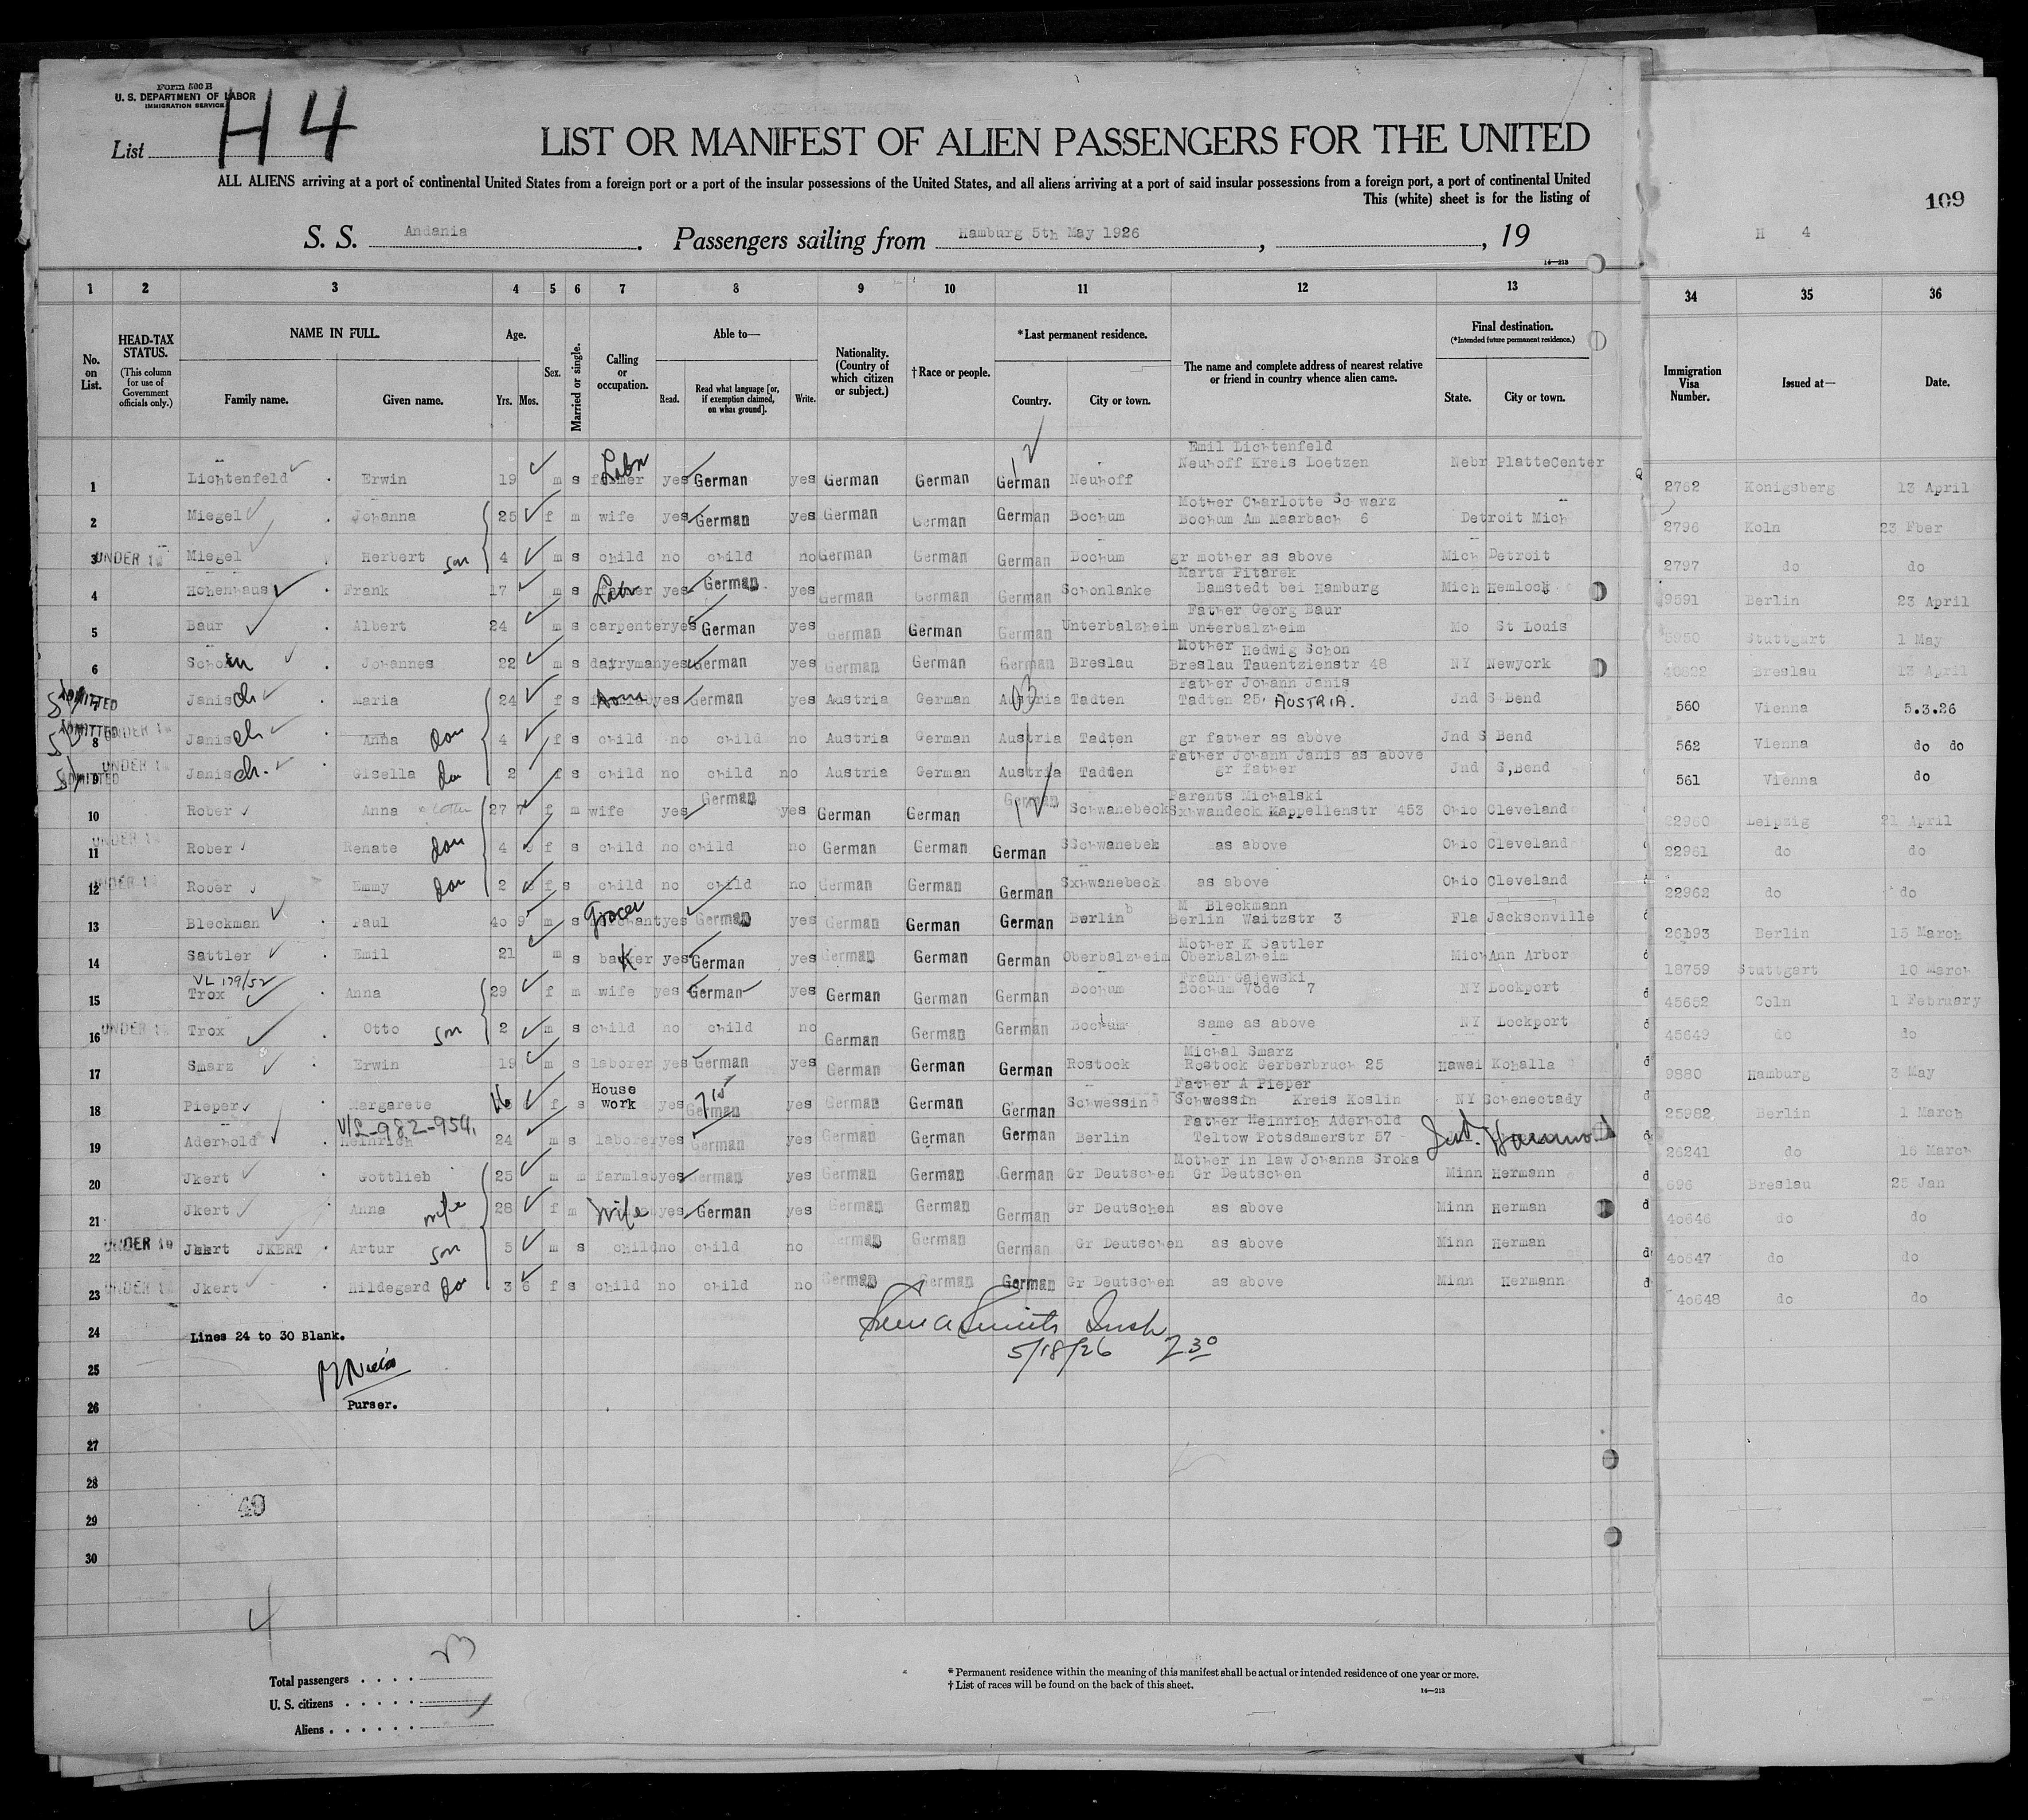 Form 500 B
U. S. DEPARTMENT OF LABOR
IMMIGRATION SERVICE
List H 4
LIST OR MANIFEST OF ALIEN PASSENGERS FOR THE UNITED
ALL ALIENS arriving at a port of continental United States from a foreign port or a port of the insular possessions of the United States, and all aliens arriving at a port of said insular possessions from a foreign port, a port of continental United
This (white) sheet is for the listing of
109
S. S. Andania. Passengers sailing from Hamburg 5th May 1926, , 19
H 4
14—213
1 2 3 4 5 6 7 8 9 10 11 12 13 34 35 36
No. on List.
HEAD-TAX STATUS.
(This column for use of Government officials only.)
NAME IN FULL.
Family name. Given name.
Age.
Yrs. Mos.
Sex.
Married or single.
Calling or occupation.
Able to—
Read. Read what language [or, if exemption claimed, on what ground]. Write.
Nationality. (Country of which citizen or subject.)
†Race or people.
*Last permanent residence.
Country. City or town.
The name and complete address of nearest relative or friend in country whence alien came.
Final destination.
(*Intended future permanent residence.)
State. City or town.
Immigration Visa Number.
Issued at—
Date.
1 Lichtenfeld Erwin 19 m s farmer Labr yes German yes German German German Neuhoff Emil Lichtenfeld Neuhoff Kreis Loetzen Nebr PlatteCenter 2752 Konigsberg 13 April
2 Miegel Johanna 25 f m wife yes German yes German German German Bochum Mother Charlotte Schwarz Bochum Am Maarbach 6 Detroit Mich 2796 Koln 23 Fber
3 UNDER 16 Miegel Herbert son 4 m s child no child no German German German Bochum gr mother as above Mich Detroit 2797 do do
4 Hohenhaus Frank 17 m s Labr yes German yes German German German Schonlanke Marta Pitarek Bamstedt bei Hamburg Mich Hemlock 9591 Berlin 23 April
5 Baur Albert 24 m s carpenter yes German yes German German German Unterbalzheim Father Georg Baur Unterbalzheim Mo St Louis 5950 Stuttgart 1 May
6 Schoen Johannes 22 m s dayryman yes German yes German German German Breslau Mother Hedwig Schon Breslau Tauentzienstr 48 NY Newyork 40822 Breslau 13 April
7 ADMITTED Janisch Maria 24 f s Dom yes German yes Austria German Austria Tadten Father Johann Janis Tadten 25, AUSTRIA. Jnd S Bend 560 Vienna 5.3.26
8 ADMITTED UNDER 16 Janisch Anna dau 4 f s child no child no Austria German Austria Tadten gr father as above Jnd S Bend 562 Vienna do do
9 ADMITTED UNDER 16 Janisch. Gisella dau 2 f s child no child no Austria German Austria Tadden Father Johann Janis as above gr father Jnd S,Bend 561 Vienna do
10 Rober Anna 27 7 f m wife yes German yes German German German Schwanebeck Parents Michalski Sxhwandeck Kappellenstr 453 Ohio Cleveland 22960 Leipzig 21 April
11 UNDER 16 Rober Renate dau 4 f s child no child no German German German SSchwanebek as above Ohio Cleveland 22961 do do
12 UNDER 16 Rober Emmy dau 2 f s child no child no German German German Sxhwanebeck as above Ohio Cleveland 22962 do do
13 Bleckman Paul 40 9 m s merchant Grocer yes German yes German German German Berlin M Bleckmann Berlin Waitzstr 3 Fla Jacksonville 26193 Berlin 15 March
14 Sattler Emil 21 m s baker yes German yes German German German Oberbalzheim Mother K Sattler Oberbalzheim Mich Ann Arbor 18759 Stuttgart 10 March
VL 179/52
15 Trox Anna 29 f m wife yes German yes German German German Bochum Fraun Gajewski Bochum Vöde 7 NY Lockport 45652 Coln 1 February
16 UNDER 16 Trox Otto son 2 m s child no child no German German German Bochum same as above NY Lockport 45649 do do
17 Smarz Erwin 19 m s laborer yes German yes German German German Rostock Michal Smarz Rostock Gerberbruch 25 Hawai Kohalla 9880 Hamburg 3 May
18 Pieper Margarete 16 f s House work yes German yes German German German Schwessin Father A Pieper Schwessin Kreis Koslin NY Schenectady 25982 Berlin 1 March
V/L-982-954.
19 Aderhold Heinrich 24 m s laborer yes German yes German German German Berlin Father Heinrich Aderhold Teltow Potsdamerstr 57 Ind. Hammond 26241 do 16 March
20 Jkert Gottlieb 25 m m farmlab yes German yes German German German Gr Deutschen Mother in law Johanna Sroka Gr Deutschen Minn Hermann 696 Breslau 25 Jan
21 Jkert Anna wife 28 f m Wife yes German yes German German German Gr Deutschen as above Minn Herman 40646 do do
22 UNDER 16 Jkert JKERT Artur son 5 m s child no child no German German German Gr Deutschen as above Minn Herman 40647 do do
23 UNDER 16 Jkert Hildegard dau 3 6 f s child no child no German German German Gr Deutschen as above Minn Hermann 40648 do do
24 Lines 24 to 30 Blank.
5/18/26 7 30
25
26 Purser.
27
28
29 49
30
4
Total passengers . . . . 23
U. S. citizens . . . . .
Aliens . . . . . .
*Permanent residence within the meaning of this manifest shall be actual or intended residence of one year or more.
†List of races will be found on the back of this sheet.
14—213